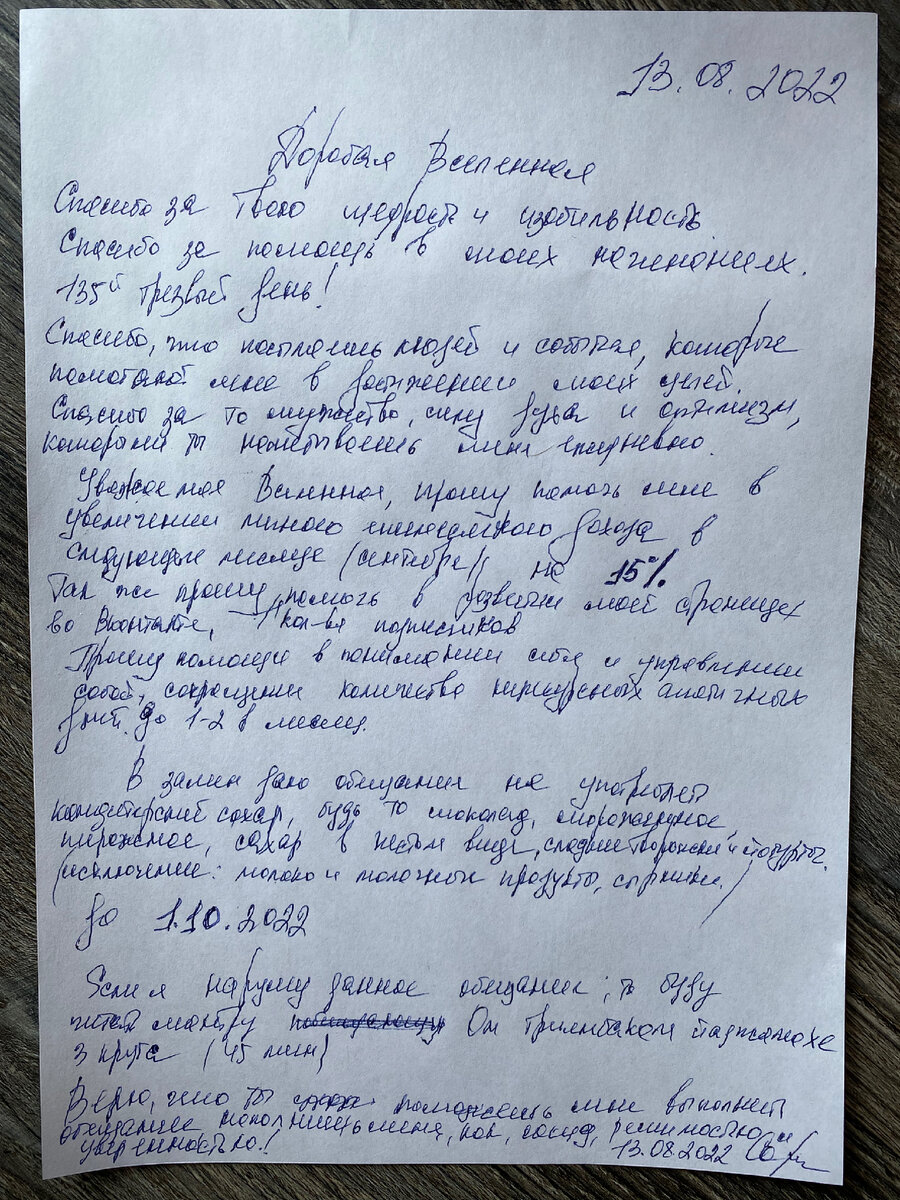 13.08.2022
Дорогая Вселенная
Спасибо за Твою щедрость и изобильность
Спасибо за помощь в моих начинаниях.
135й трезвый день!
Спасибо, что посылаешь людей и события, которые
помогают мне в достижении моих целей.
Спасибо за то мужество, силу духа и оптимизм,
которыми ты напитываешь меня ежедневно.
Уважаемая Вселенная, прошу помочь мне в
увеличении личного ежемесячного дохода в
следующем месяце (сентябре), на 15%.
Так же прошу помочь в развитии моей страницы
во Вконтакте, кол-ва подписчиков
Прошу помощи в понимании себя и управлении
собой, сокращении количества апатичных
дней до 1-2 в месяц.
В замен даю обещание не употреблять
кондитерский сахар, будь то шоколад, мороженное,
пирожное, сахар в чистом виде, сладкие творожки и йогурты.
(исключение: молоко и молочные продукты, сырники.)
до 1.10.2022
Если я нарушу данное обещание, то буду
читать мантру Ом Триамбакам йаджамахе
3 круга (45 мин)
Верю, что ты поможешь мне выполнить
обещание наполнишь меня, как сосуд, решимостью
уверенностью!
13.08.2022